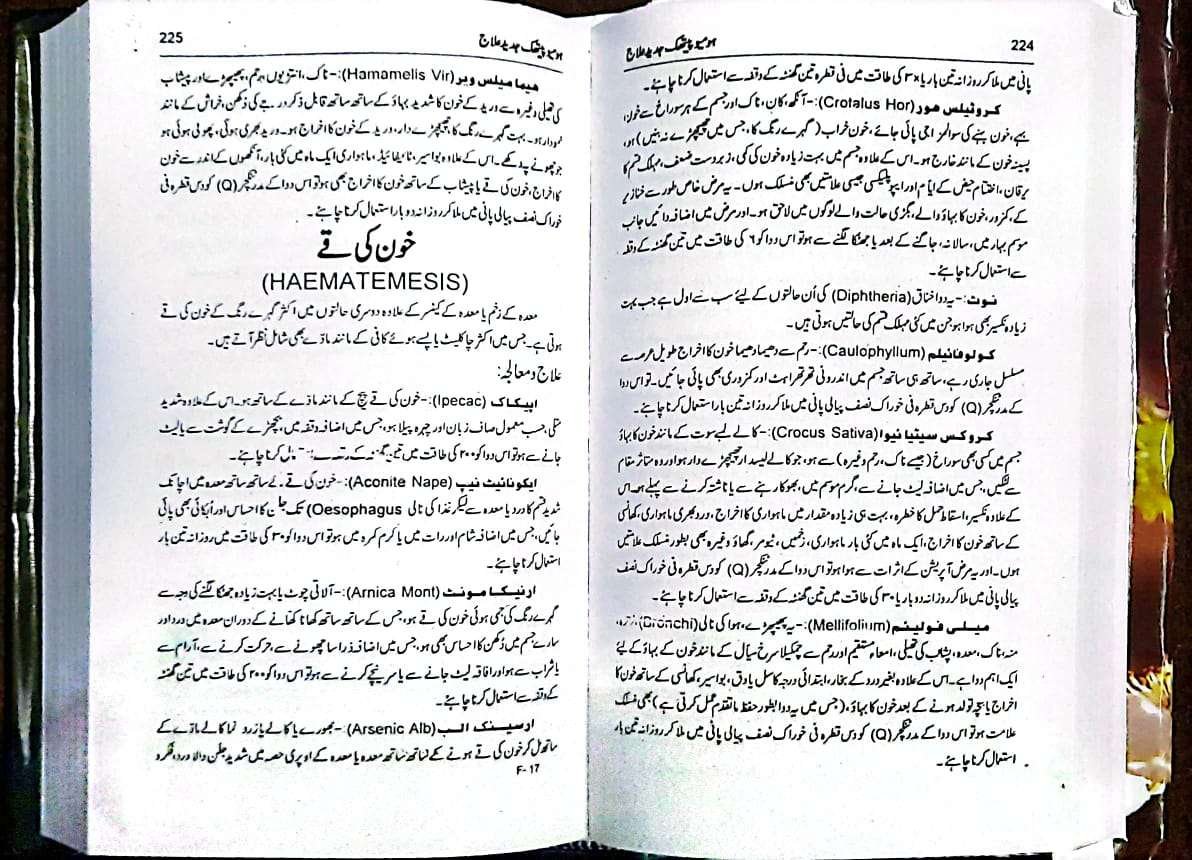 224
ہومیوپیتھک جدید علاج
پانی میں ملا کر روزانہ تین بار یا ۳x کی طاقت میں فی قطرہ تین گھنٹہ کے وقفہ سے استعمال کرنا چاہئے۔
کروٹیلس ہور (Crotalus Hor):- آنکھ، کان، ناک اور جسم کے ہر سوراخ سے خون،
بہے، خون بہنے کی سوالمزاجی پائی جائے، خون خراب (گہرے رنگ کا، جس میں چھیچھڑے نہ بنیں) ہو،
پسینہ خون کے مانند خارج ہو۔ اس کے علاوہ جسم میں بہت زیادہ خون کی کمی، زبردست ضعف، مہلک قسم کا
یرقان، اختتام حیض کے ایام اور اپوپلیکسی جیسی علامتیں بھی منسلک ہوں۔ یہ مرض خاص طور سے خنازیر
کے، کمزور، خون کا بہاؤ والے، بگڑی حالت والے لوگوں میں لاحق ہو۔ اور مرض میں اضافہ دائیں جانب
موسم بہار میں، سالانہ، جاگنے کے بعد یا جھٹکا لگنے سے ہو تو اس دوا کو ۶ کی طاقت میں تین گھنٹہ کے وقفہ
سے استعمال کرنا چاہئے۔
نوٹ:- یہ دوا خناق (Diphtheria) کی اُن حالتوں کے لیئے سب سے اول ہے جب بہت
زیادہ نکسیر بھی ہوا ہو جن میں کئی مہلک قسم کی حالتیں ہوتی ہیں۔
کولوفائیلم (Caulophyllum):- رحم سے دھیما دھیما خون کا اخراج طویل عرصہ سے
مسلسل جاری رہے، ساتھ ہی ساتھ جسم میں اندرونی تھرتھراہٹ اور کمزوری بھی پائی جائیں۔ تو اس دوا
کے مدر ٹنکچر (Q) کو دس قطرہ فی خوراک نصف پیالی پانی میں ملا کر روزانہ تین بار استعمال کرنا چاہئے۔
کروکس سیٹیا ئیوا (Crocus Sativa):- کالے لمبے سوت کے مانند خون کا بہاؤ
جسم میں کسی بھی سوراخ (جیسے ناک، رحم وغیرہ) سے ہو، جو کالے لیسدار چھیچھڑے دار ہو اور وہ متاثر مقام
سے لٹکیں، جس میں اضافہ لیٹ جانے سے، گرم موسم میں، بھوکا رہنے سے یا ناشتہ کرنے سے پہلے ہو۔ اس
کے علاوہ نکسیر، اسقاط حمل کا خطرہ، بہت ہی زیادہ مقدار میں ماہواری کا اخراج، درد بھری ماہواری، کھانسی
کے ساتھ خون کا اخراج، ایک ماہ میں کئی بار ماہواری، زخمیں، ٹیومر، گھاؤ وغیرہ بھی بطور منسلک علامتیں
ہوں۔ اور یہ مرض آپریشن کے اثرات سے ہوا ہو تو اس دوا کے مدر ٹنکچر (Q) کو دس قطرہ فی خوراک نصف
پیالی پانی میں ملا کر روزانہ دو بار یا ۳۰ کی طاقت میں تین گھنٹہ کے وقفہ سے استعمال کرنا چاہئے۔
میلی فولینم (Mellifolium):- یہ پھیپھڑے، ہوا کی نالی (Bronchi)
منہ، ناک، معدہ، پیشاب کی تھیلی، امعاء مستقیم اور رحم سے چمکیلا سرخ سیال کے مانند خون کے بہاؤ کے لیئے
ایک اہم دوا ہے۔ اس کے علاوہ بغیر درد کے بخار، ابتدائی درجہ کا سل یا دق، بواسیر، کھانسی کے ساتھ خون کا
اخراج یا بچہ تولد ہونے کے بعد خون کا بہاؤ، (جس میں یہ دوا بطور حفظ ماتقدم عمل کرتی ہے) بھی منسلک
علامت ہو تو اس دوا کے مدر ٹنکچر (Q) کو دس قطرہ فی خوراک نصف پیالی پانی میں ملا کر روزانہ تین بار
استعمال کرنا چاہئے۔
225
ہومیوپیتھک جدید علاج
ہیما میلس ویر (Hamamelis Vir):- ناک، انتڑیوں، رحم، پھیپھڑے اور پیشاب
کی تھیلی وغیرہ سے ورید کے خون کا شدید بہاؤ کے ساتھ ساتھ قابل ذکر درجے کی دُکھن، خراش کے مانند
نمودار ہو۔ بہت گہرے رنگ کا، چھیچھڑے دار، ورید کے خون کا اخراج ہو۔ ورید بھری ہوئی، پھولی ہوئی ہو
جو چھونے پر دکھے۔ اس کے علاوہ بواسیر، ٹائیفائیڈ، ماہواری ایک ماہ میں کئی بار، آنکھوں کے اندر سے خون
کا اخراج، خون کی قے یا پیشاب کے ساتھ خون کا اخراج بھی ہو تو اس دوا کے مدر ٹنکچر (Q) کو دس قطرہ فی
خوراک نصف پیالی پانی میں ملا کر روزانہ دو بار استعمال کرنا چاہئے۔
خون کی قے
(HAEMATEMESIS)
معدہ کے زخم یا معدہ کے کینسر کے علاوہ دوسری حالتوں میں اکثر گہرے رنگ کے خون کی قے
ہوتی ہے۔ جس میں اکثر چاکلیٹ یا پسے ہوئے کافی کے مانند مادّے بھی شامل نظر آتے ہیں۔
علاج و معالجہ:
ایپکاک (Ipecac):- خون کی قے پیچ کے مانند مادے کے ساتھ ہو۔ اس کے علاوہ شدید
متلی، حسب معمول صاف زبان اور چہرہ پیلا ہو، جس میں اضافہ وقفہ میں، بچھڑے کے گوشت سے یا لیٹ
جانے سے ہو تو اس دوا کو ۲۰۰ کی طاقت میں تین گھنٹہ کے کرنا چاہئے۔
ایکونائیٹ نیپ (Aconite Nape):- خون کی قے کے ساتھ ساتھ معدہ میں اچانک
شدید قسم کا درد یا معدہ سے لیکر غذا کی نالی Oesophagus) تک جلن کا احساس اور اُبکائی بھی پائی
جائیں، جس میں اضافہ شام اور رات میں یا گرم کمرہ میں ہو تو اس دوا کو ۳۰ کی طاقت میں روزانہ تین بار
استعمال کرنا چاہئے۔
ارنیکا مونٹ (Arnica Mont):- آلاتی چوٹ یا بہت زیادہ جھٹکا لگنے کی وجہ سے
گہرے رنگ کی جمی ہوئی خون کی قے ہو، جس کے ساتھ ساتھ کھانا کھانے کے دوران معدہ میں درد اور
سارے جسم میں دُکھن کا احساس بھی ہو، جس میں اضافہ ذرا سا چھونے سے، حرکت کرنے سے، آرام سے
یا شراب سے ہو اور افاقہ لیٹ جانے سے یا سر نیچے کرنے سے ہو تو اس دوا کو ۲۰۰ کی طاقت میں تین گھنٹہ
کے وقفہ سے استعمال کرنا چاہئے۔
ارسینک الب (Arsenic Alb):- بھورے یا کالے یا زرد نما کالے مادّے کے
ساتھ مل کر خون کی قے ہونے کے ساتھ ساتھ معدہ یا معدہ کے اوپری حصہ میں شدید جلن والا درد، فکر و
F-17